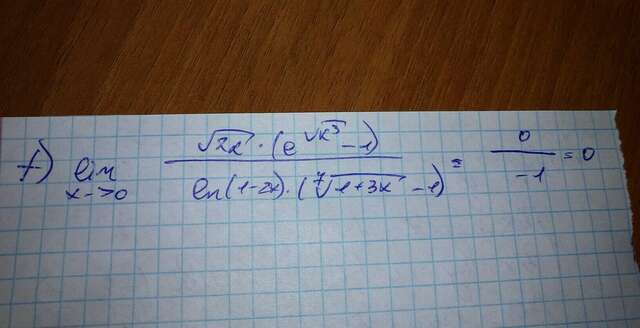 f) lim x->0 √2x · (e^√x³ - 1) / ln(1-2x) · (⁷√1+3x - 1) = 0 / -1 = 0